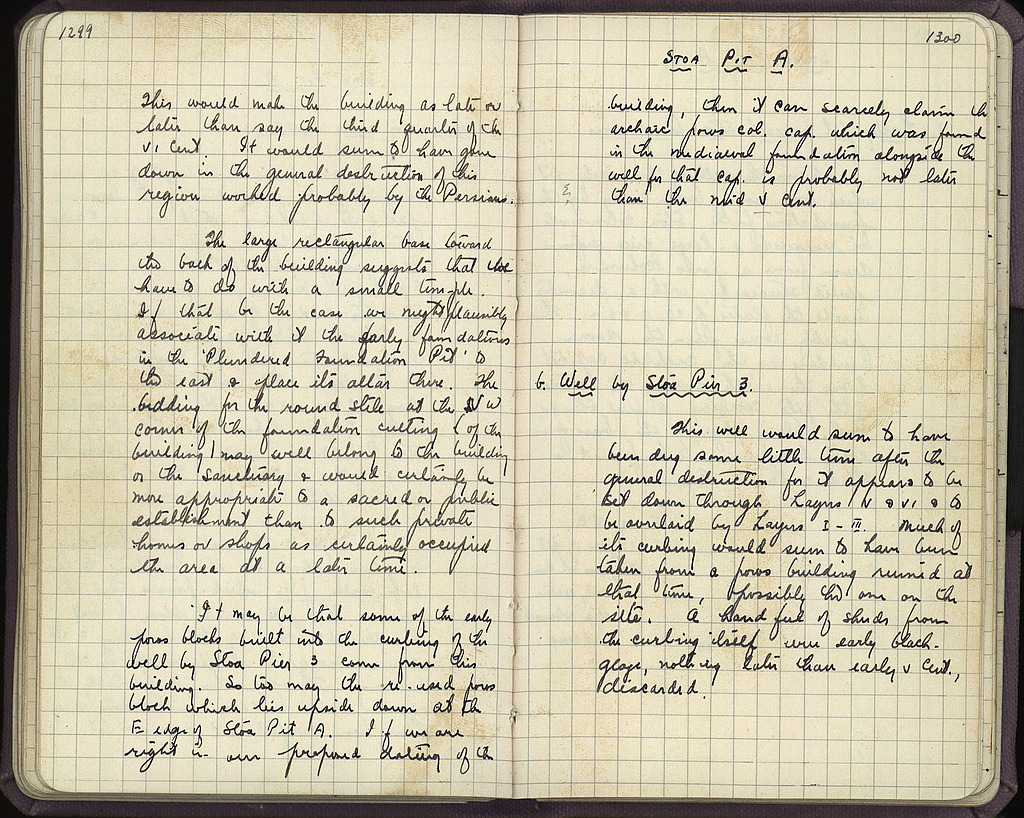 1299
This would make the building as late or
later than say the third quarter of the
VI Cent. It would seem to have gone
down in the general destruction of this
region worked probably by the Persians.
The large rectangular base toward
the back of the building suggests that we
have to do with a small temple.
If that be the case we might plausibly
associate with it the early foundations
in the 'Plundered Foundation Pit' to
the east & place its altar there. The
bedding for the round stele at the SW
corner of the foundation cutting of the
building may well belong to the building
or the Sanctuary & would certainly be
more appropriate to a sacred or public
establishment than to such private
homes or shops as certainly occupied
the area at a later time.
It may be that some of the early
poros blocks built into the curbing of the
well by Stoa Pier 3 come from this
building. So too may the re-used poros
block which lies upside down at the
E edge of Stoa Pit A. If we are
right in our proposed dating of the
1300
STOA PIT A.
building, then it can scarcely claim the
archaic poros col. cap. which was found
in the mediaeval foundation alongside the
well for that cap. is probably not later
than the mid V Cent.
6. Well by Stoa Pier 3.
This well would seem to have
been dug some little time after the
general destruction for it appears to be
set down through Layers V & VI & to
be overlaid by Layers I - III. Much of
its curbing would seem to have been
taken from a poros building ruined at
that time, possibly the one on the
site. A handful of sherds from
the curbing itself were early black-
glaze, nothing later than early V Cent.,
discarded.